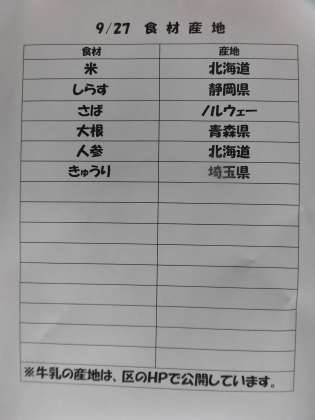 9/27 食材産地
食材 産地
米 北海道
しらす 静岡県
さば ノルウェー
大根 青森県
人参 北海道
きゅうり 埼玉県
※牛乳の産地は、区のHPで公開しています。